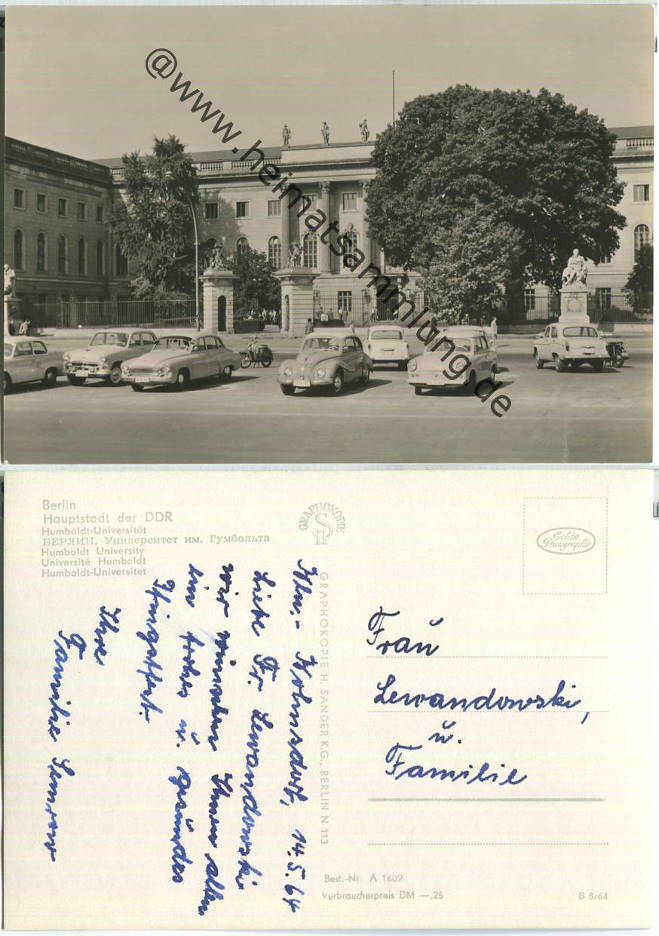 @www.heimatsammlung.de
Berlin
Hauptstadt der DDR
Humboldt-Universität
БЕРЛИН, Университет им. Гумбольта
Humboldt University
Université Humboldt
Humboldt-Universitet
GRAPHOKOPIE
GRAPHOKOPIE H. SANDER K.G., BERLIN N 113
Echte
Photographie
Bln.- 14.5.64
Liebe Fr. Lewandowski
wir wünschen Ihnen allen
ein frohes u. gesundes
Pfingstfest.
Ihre
Familie
Frau
Lewandowski,
u.
Familie
Best.-Nr. A 1609
Verbraucherpreis DM —,25
B 8/64